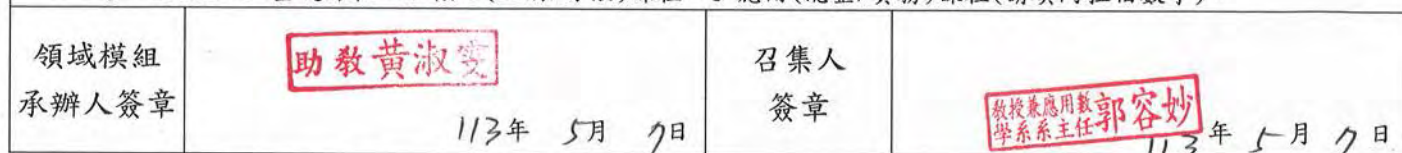 領域模組
承辦人簽章
助教黃淑雯
113年 5月 7日
召集人
簽章
教授兼應用數
學系系主任郭容妙
113年 5月 7日